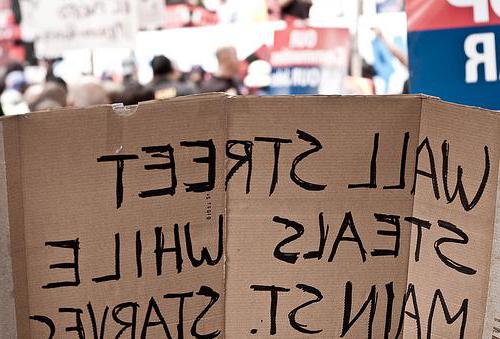 WALL STREET
STEALS WHILE
MAIN ST. STARVES